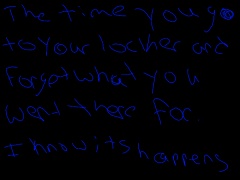 The time you go
to your locker and
Forgot what you
went there for.
I know its happens